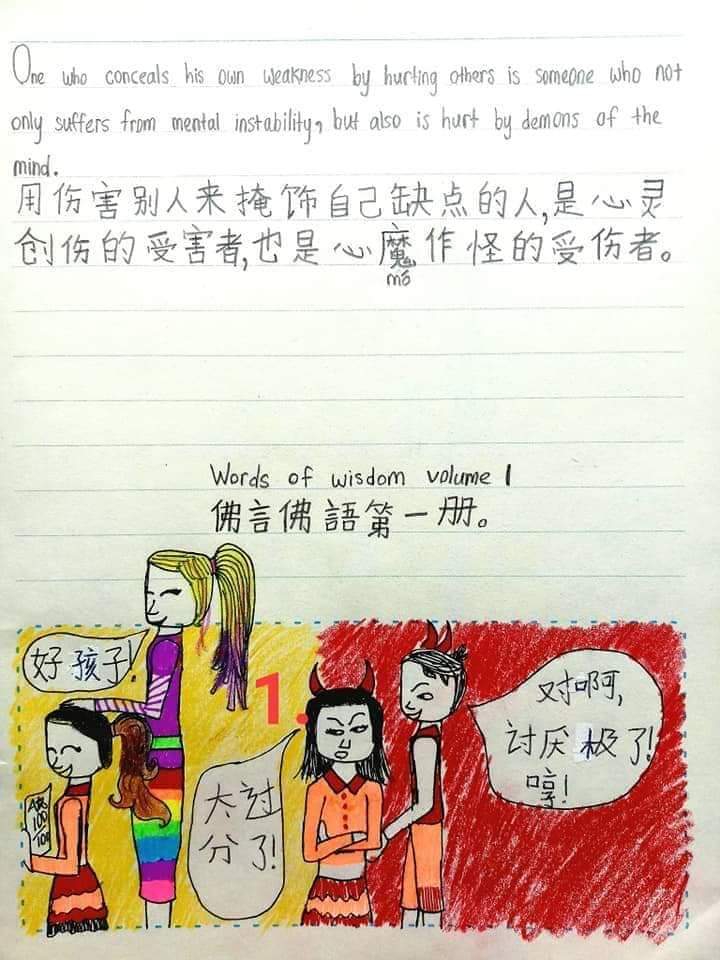 One who conceals his own weakness by hurting others is someone who not
only suffers from mental instability, but also is hurt by demons of the
mind.
用伤害别人来掩饰自己缺点的人,是心灵
创伤的受害者,也是心魔作怪的受伤者。
mó
Words of wisdom volume 1
佛言佛語第一册。
好孩子!
1.
对啊,
讨厌极了!
哼!
太过
分了!
100
100